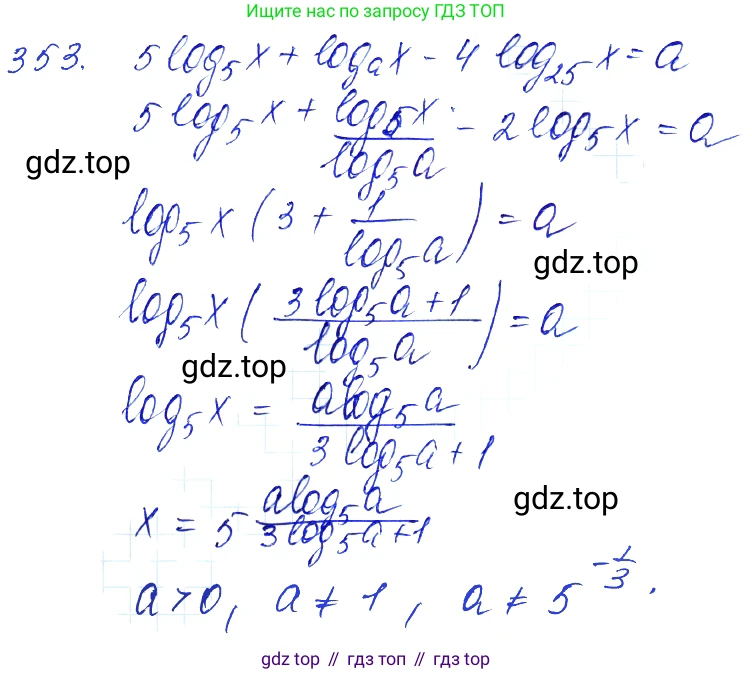 Ищите нас по запросу ГДЗ ТОП
353. 5 log₅ x + logₐ x - 4 log₂₅ x = a
5 log₅ x + log₅ x / log₅ a - 2 log₅ x = a
gdz.top
log₅ x (3 + 1 / log₅ a) = a
gdz.top
log₅ x ((3 log₅ a + 1) / log₅ a) = a
gdz.top
log₅ x = a log₅ a / (3 log₅ a + 1)
gdz.top
x = 5^(a log₅ a / (3 log₅ a + 1))
a > 0, a ≠ 1, a ≠ 5^(-1/3).
gdz top // гдз топ // gdz top